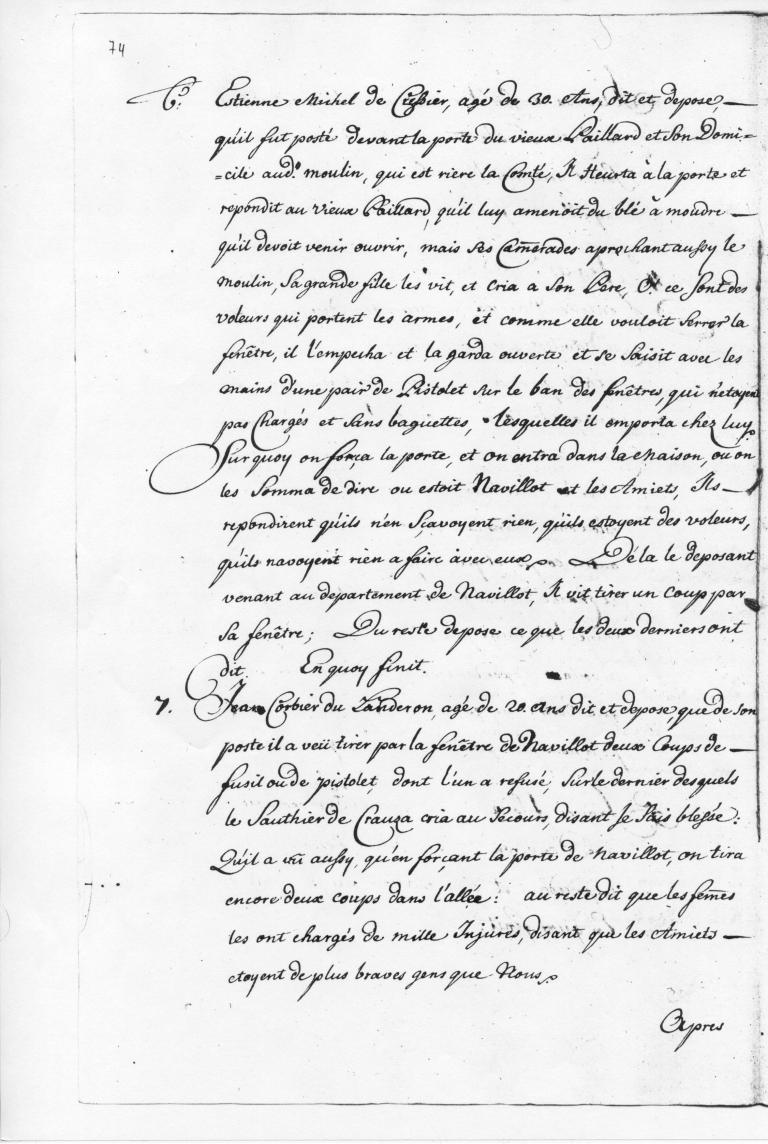 74
6.º Estienne Michel de Cressier, agé de 30. Ans, dit et depose, —
qu'il fut posté devant la porte du vieux Paillard et son Domi=
=cile aud.º moulin, qui est riere la Comté, Il Heurta à la porte et
repondit au vieux Paillard, qu'il luy amenoit du blé à moudre —
qu'il devoit venir ouvrir, mais ses Camerades aprochant aussy le
moulin, sa grande fille les vit, et cria a son Pere, O. ce sont des
voleurs qui portent les armes, et comme elle vouloit serrer la
fenêtre, il l'empecha et la garda ouverte et se saisit avec les
mains d'une pair de Pistolet sur le ban des fenêtres, qui n'etoyent
pas Chargés et sans baguettes, lesquelles il emporta chez luy.
Sur quoy on força la porte, et on entra dans la maison, ou on
les Somma de dire ou estoit Navillot et les Amiets, Ils —
repondirent qu'ils n'en sçavoyent rien, qu'ils estoyent des voleurs,
qu'ils navoyent rien a faire àvec eux. Dé la le deposant
venant au departement de Navillot, Il vit tirer un Coup par
sa fenêtre; Du reste depose ce que les deux derniers ont
dit. En quoy finit.
7. Jean Corbier du Landeron, agé de 20. Ans dit et depose, que de son
poste il a veü tirer par la fenêtre de Navillot deux Coups de —
fusil ou de pistolet, dont l'un a refusé, sur le dernier desquels
le Sauthier de Crauza cria au secours, disant Je suis blessé:
Qu'il a vû aussy, qu'en forçant la porte de Navillot, on tira
encore deux coups dans l'allée: au reste dit que les fem̃es
les ont chargés de mille Injures, disant que les Amiets —
etoyent de plus braves gens que Nous.
Apres